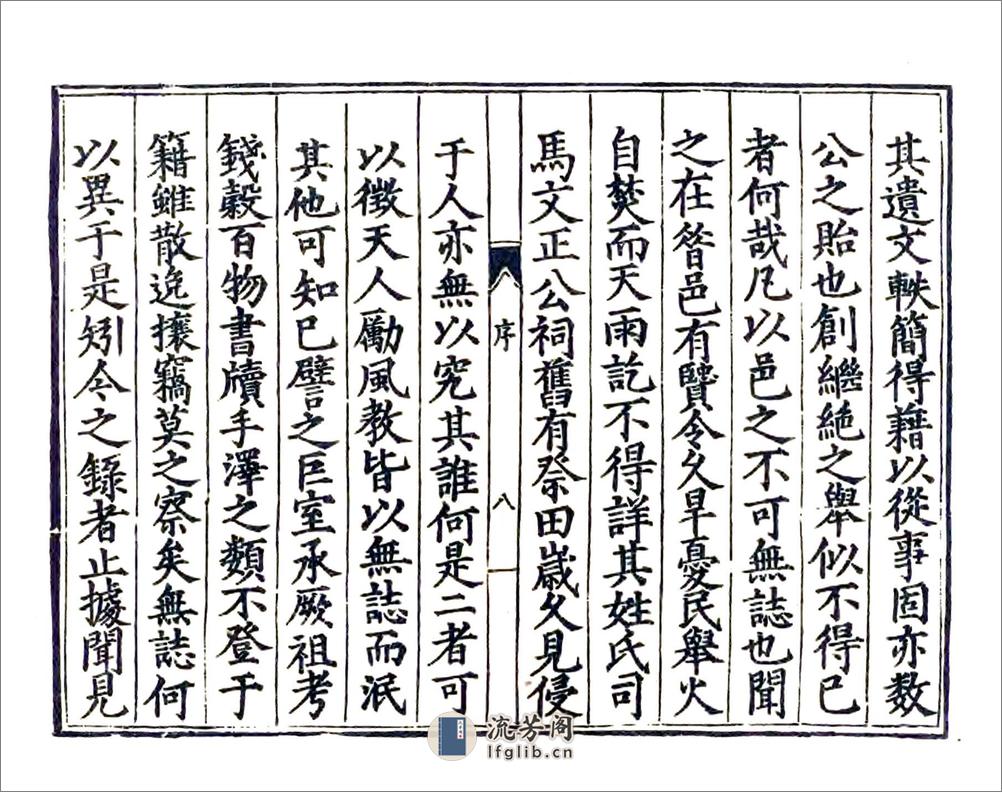 其遺文軼簡得藉以從事固亦数
公之貽也創繼絶之舉似不得已
者何哉凡以邑之不可無誌也聞
之在昝邑有賢令久旱憂民舉火
自焚而天雨訖不得詳其姓氏司
馬文正公祠舊有祭田嵗久見侵
序
八
于人亦無以究其誰何是二者可
以徴天人勵風教皆以無誌而泯
其他可知已譬之巨室承厥祖考
錢穀百物書牘手澤之類不登于
籍雖散逸攘竊莫之察矣無誌何
以異于是矧今之錄者止據聞見
流芳阁
lfglib.cn